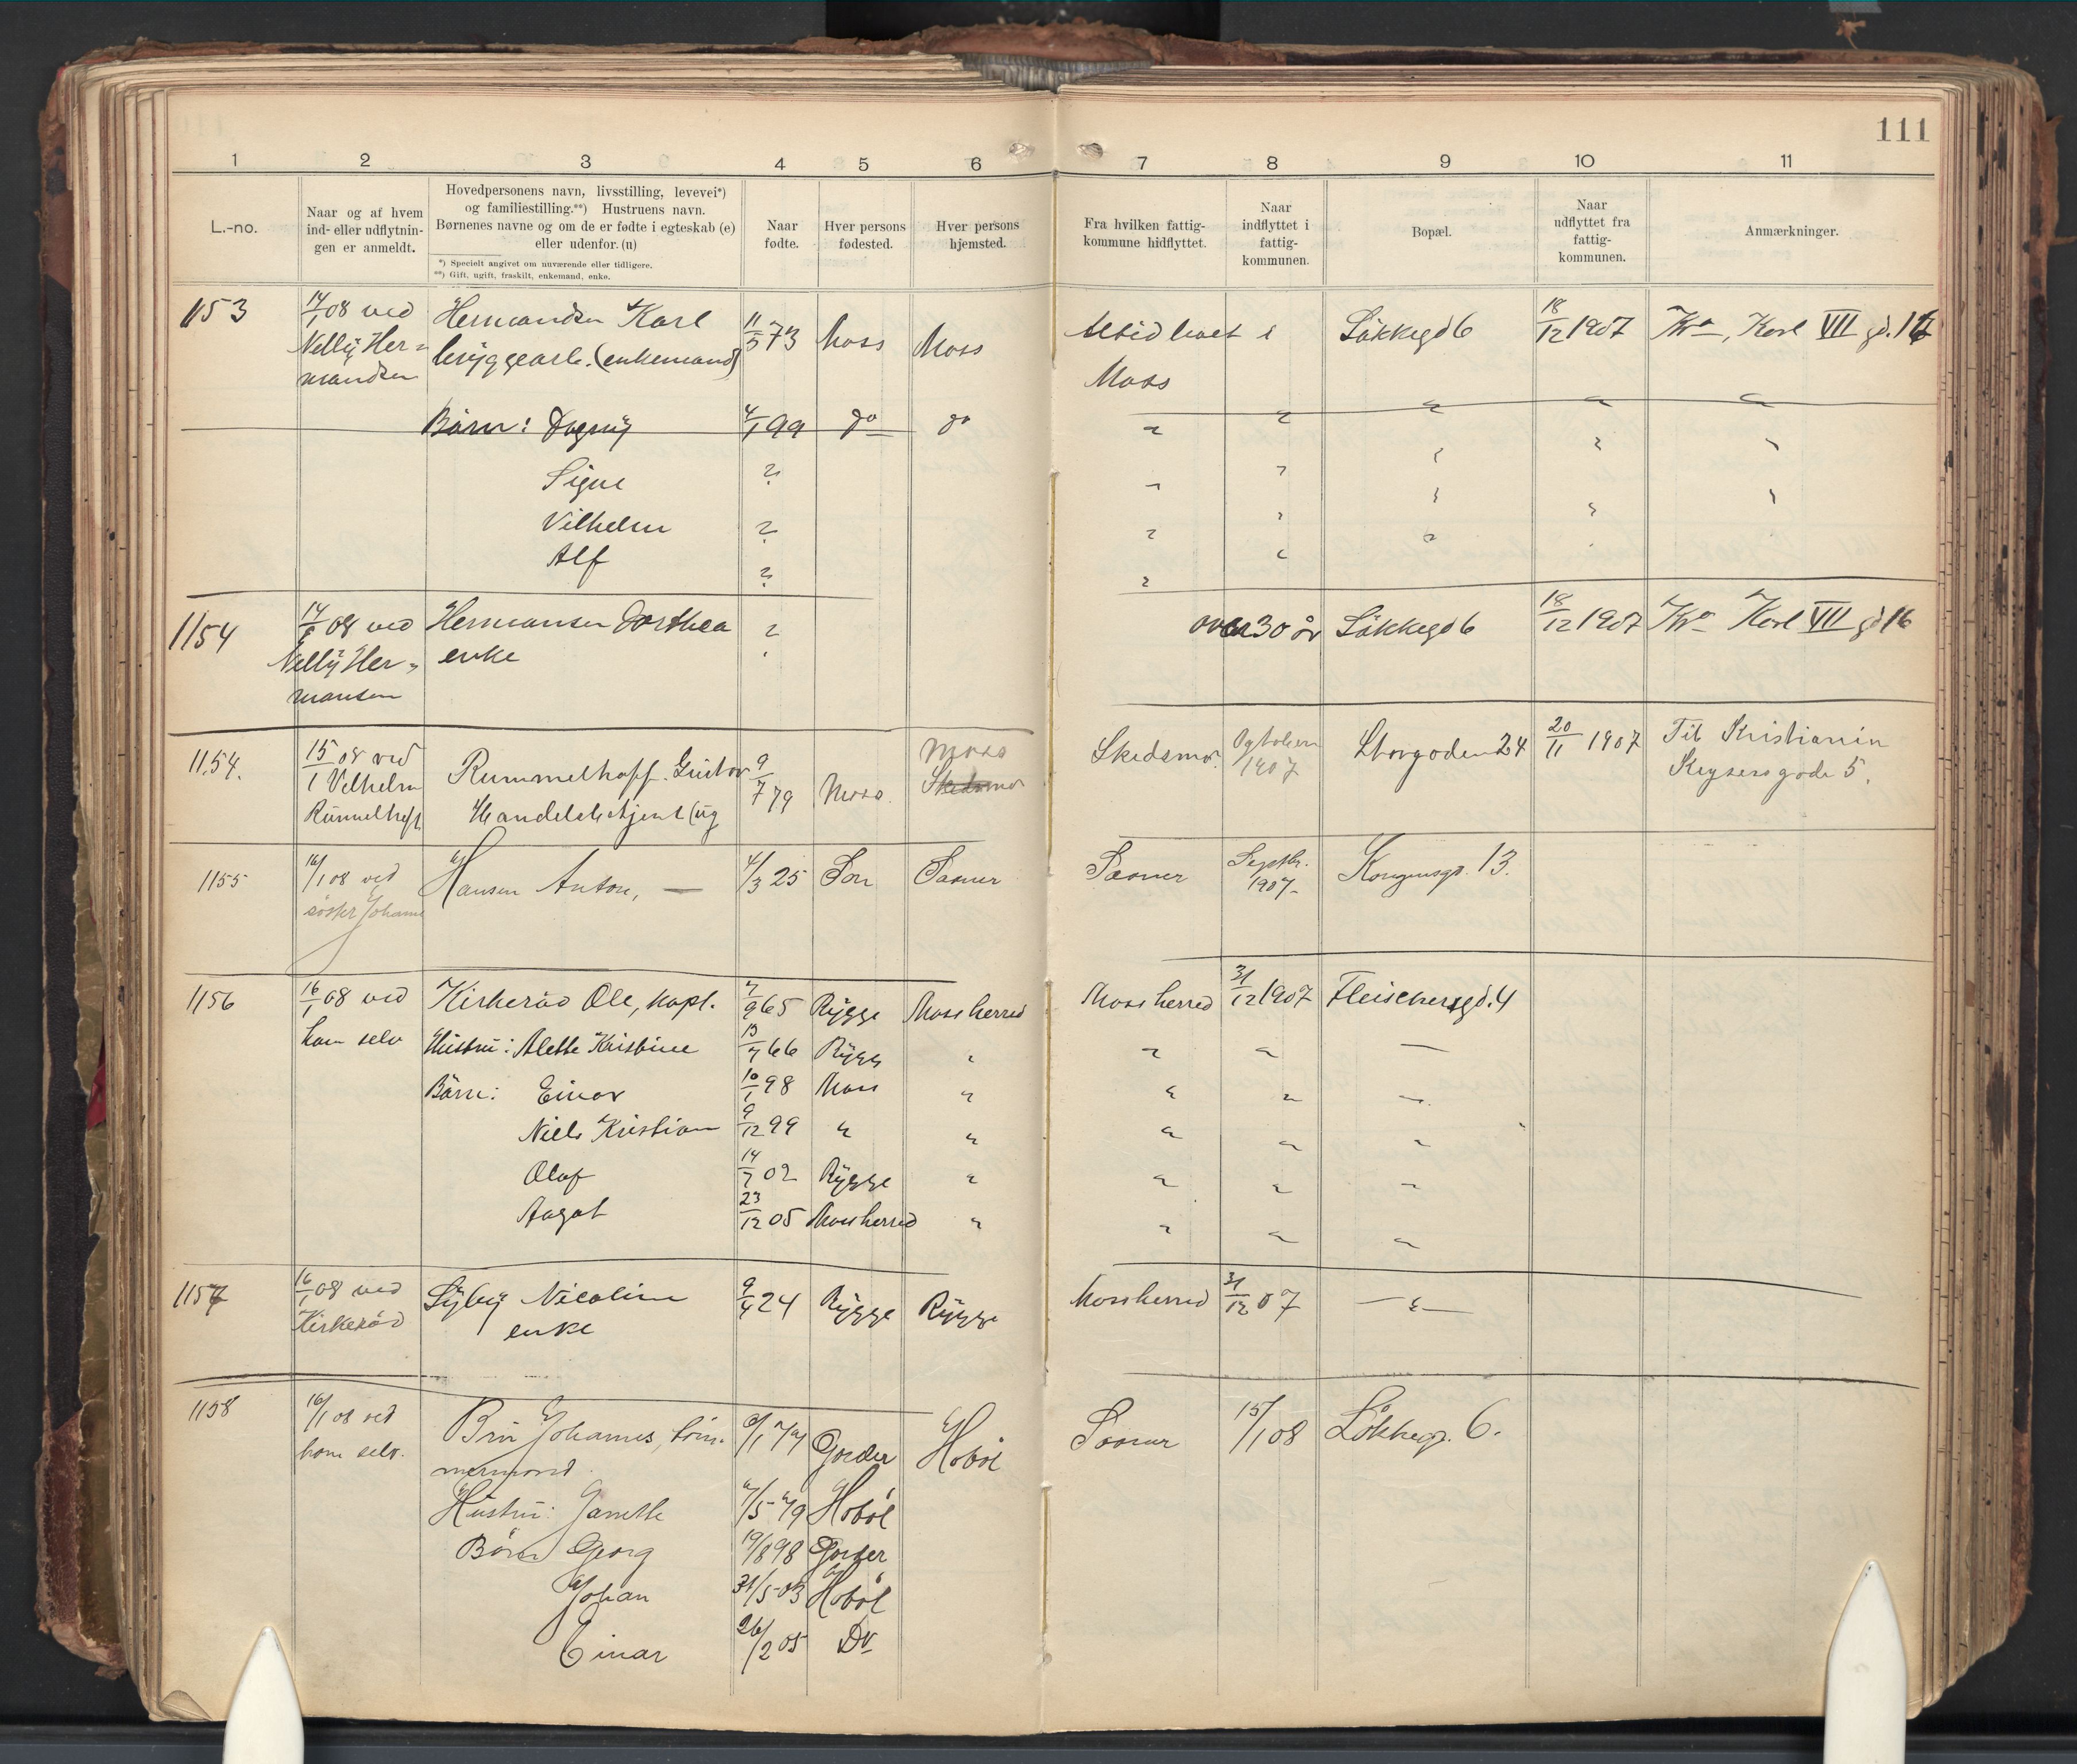 111
1 2 3 4 5 6 7 8 9 10 11
L.-no.
Naar og af hvem
ind- eller udflytnin-
gen er anmeldt.
Hovedpersonens navn, livsstilling, levevei*)
og familiestilling.**) Hustruens navn.
Børnenes navne og om de er fødte i egteskab (e)
eller udenfor. (u)
*) Specielt angivet om nuværende eller tidligere.
**) Gift, ugift, fraskilt, enkemand, enke.
Naar
fødte.
Hver persons
fødested.
Hver persons
hjemsted.
Fra hvilken fattig-
kommune hidflyttet.
Naar
indflyttet i
fattig-
kommunen.
Bopæl.
Naar
udflyttet fra
fattig-
kommunen.
Anmærkninger.
1153 14/1 08 ved Hermandsen Karl 11/5 73 Moss Moss Altid boet i Løkkegd 6 18/12 1907 Kra, Karl VII gd. 16
Nelly Her= bryggearb. (enkemand) Moss
mandsen
Børn: Dagny 4/1 99 do do
Signe ?
Vilhelm ?
Alf ?
1154 14/1 08 ved Hermansen Dorthea ? over 30 år Løkkegd 6 18/12 1907 Kra Karl VII gd 16
Nelly Her= enke
mansen
1154. 15/1 08 ved Rummelhoff. Gustav 9/7 79 Moss. Moss Skedsmo. Ogtober 1907 Storgaden 24 20/11 1907 Til Kristiania
Vilhelm Handelsbetjent (ug Skedsmo Keysersgade 5.
Rummelhoff
1155 16/1 08 ved Hansen Anton, — 4/3 25 Son Saaner Saaner Septbr. 1907 Kongensgd. 13.
søster Johanne
1156 16/1 08 ved Kirkerød Ole, kapt. 7/9 65 Rygge Moss herred Moss herred 31/12 1907 Fleischersgd. 4
ham selv Hustru: Alette Kristine 13/7 66 Rygge "
Børn: Einar 10/1 98 Moss "
Niels Kristian 9/12 99 " "
Olaf 14/7 02 Rygge "
Aagot 23/12 05 Moss herred "
1157 16/1 08 ved Lyby Nicoline 9/4 24 Rygge Rygge Moss herred 31/12 07 — " —
Kirkerød enke
1158 16/1 08 ved Johannes, tøm- Hobøl Saaner 15/1 08 Løkkegd. 6.
ham selv. mermand.
Hustru: Janette 7/5 79 Hobøl
Børn Georg 19/8 98
Johan 31/5 03 Hobøl
Einar 26/2 05 Do